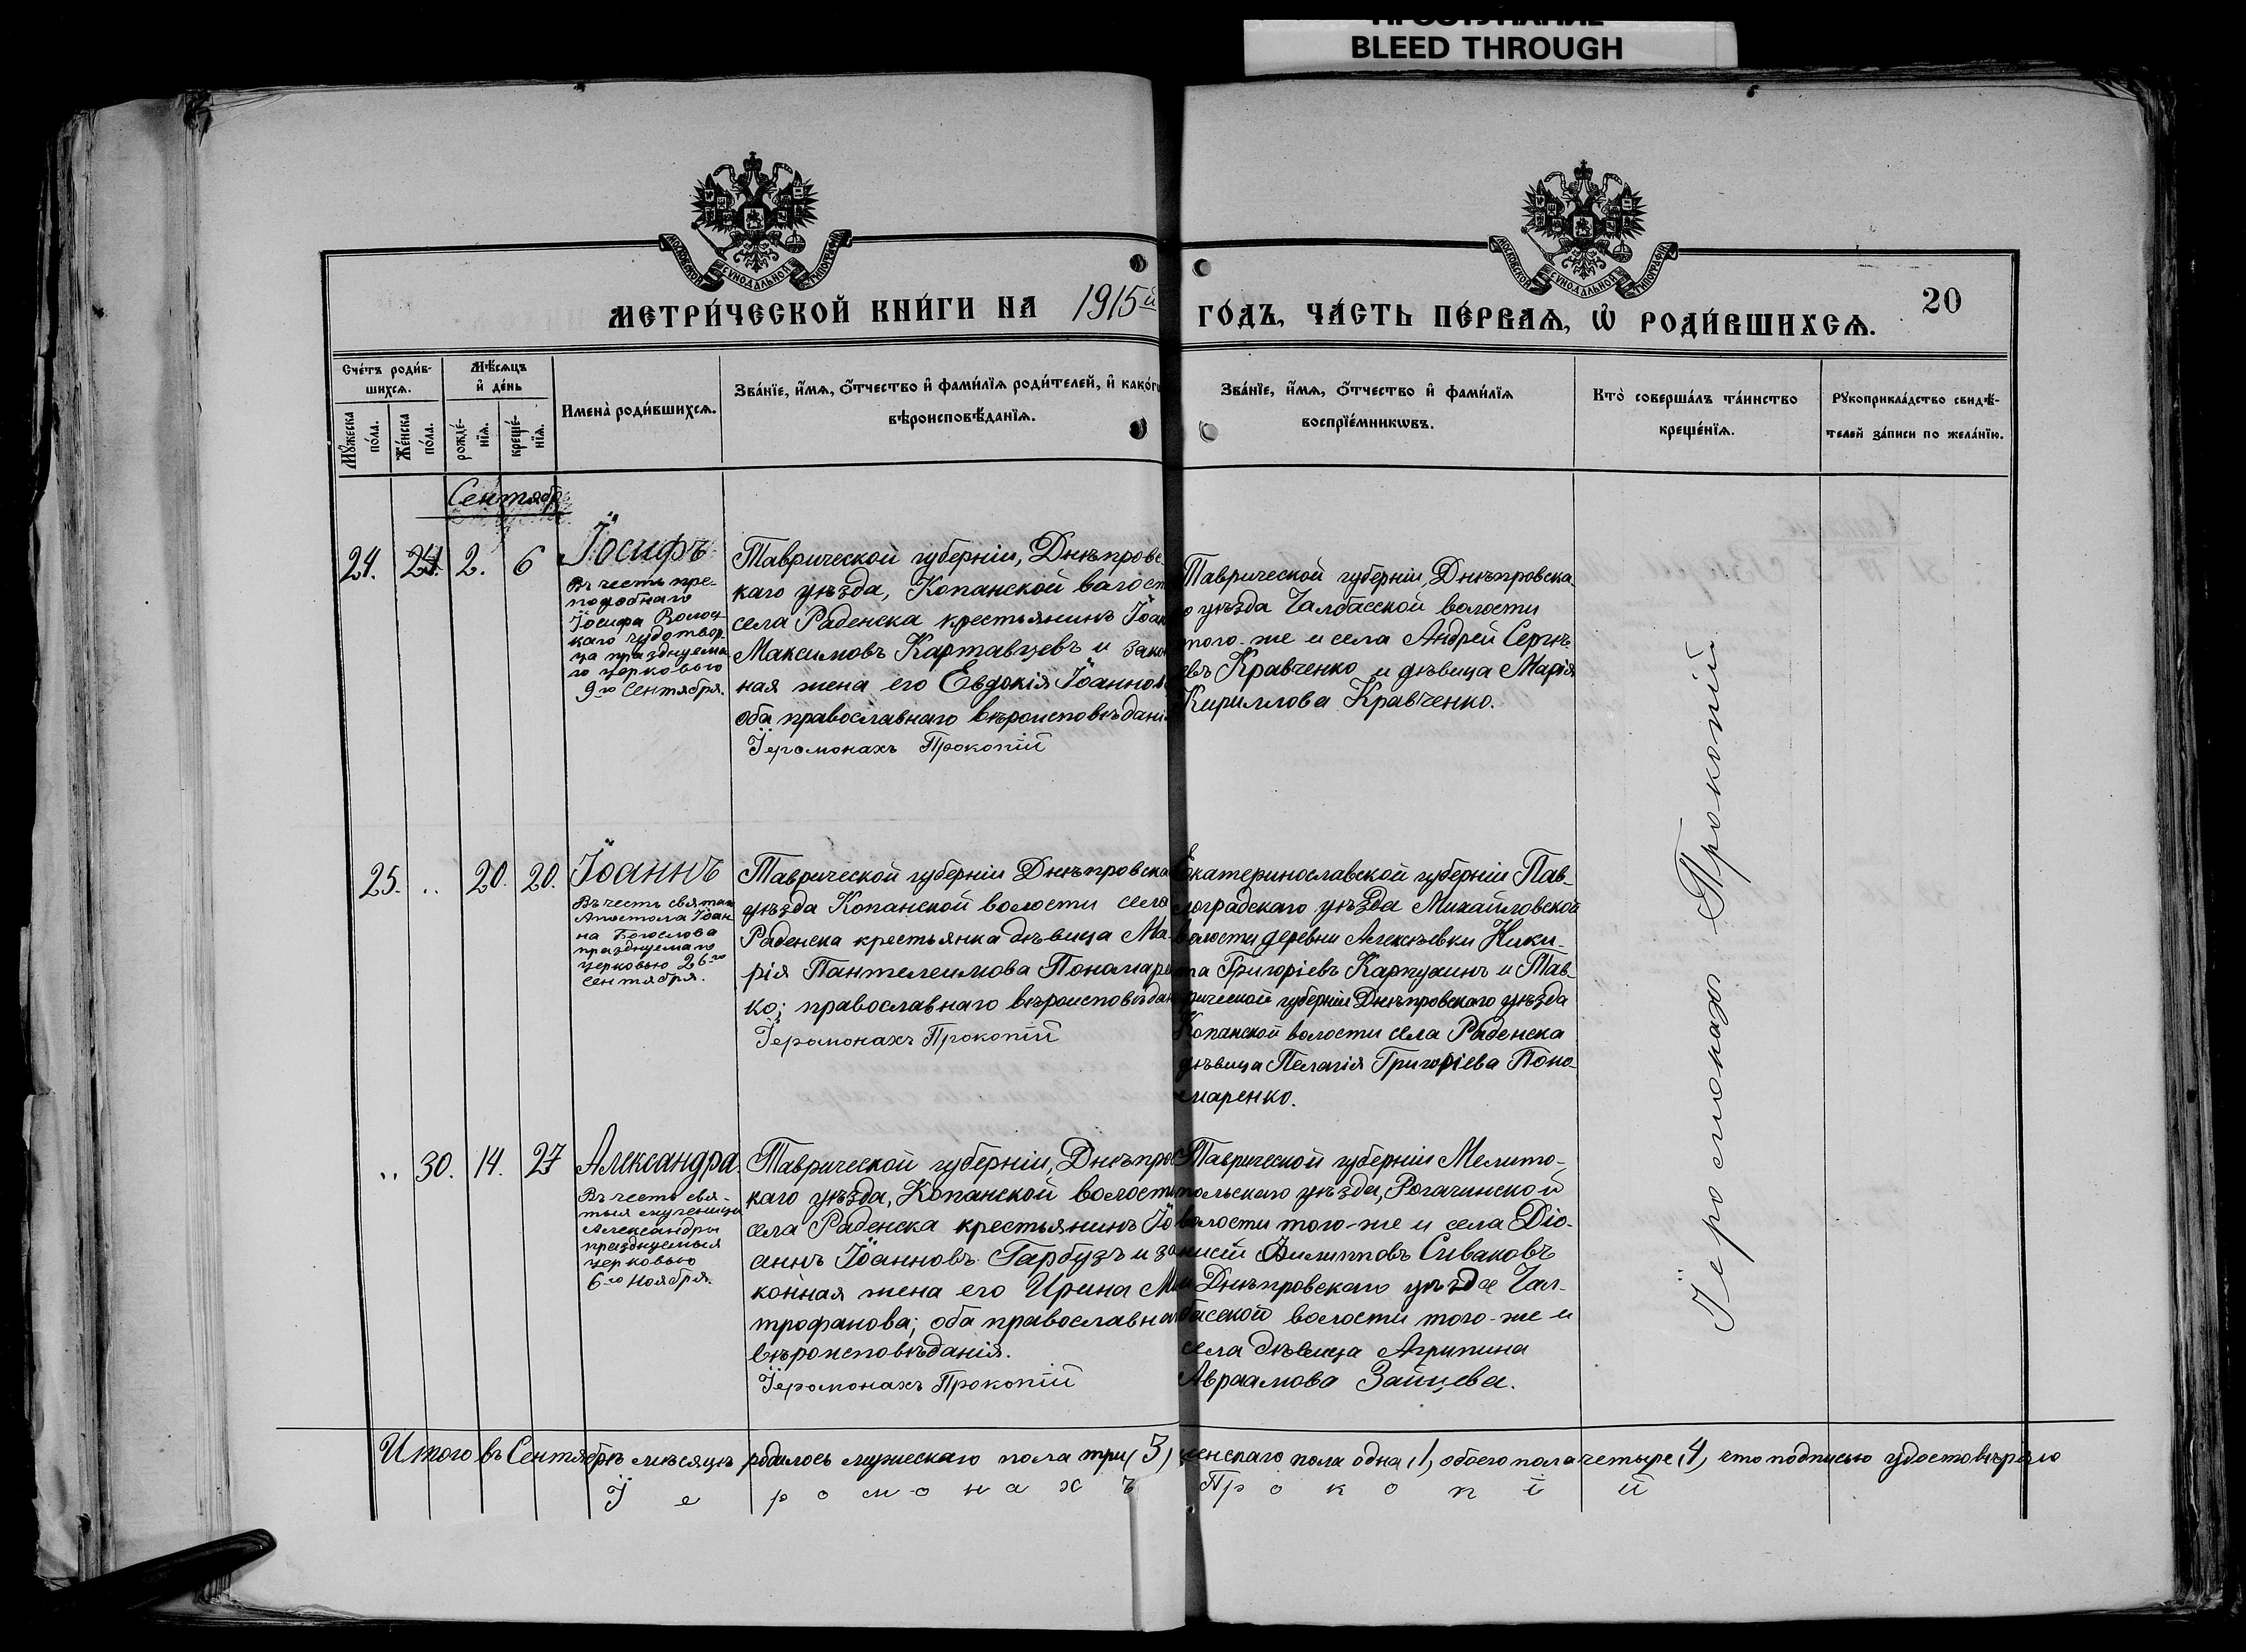 ПРОСТУПАНИЕ
BLEED THROUGH
МОСКОВСКОЙ СѴНОДАЛЬНОЙ ТИПОГРАФІИ
МОСКОВСКОЙ СѴНОДАЛЬНОЙ ТИПОГРАФІИ
МЕТРИ́ЧЕСКОЙ КНИ́ГИ НА 1915й ГО́ДЪ, ЧА́СТЬ ПЕ́РВАѦ, Ѡ҆ РОДИ́ВШИХСѦ.
20
Сче́тъ роди́в-
шихсѧ.
Мꙋ́жеска
по́ла.
Же́нска
по́ла.
Мѣ́сѧцъ
и҆ де́нь
рожде́-
нїѧ.
креще́-
нїѧ.
Имена̀ роди́вшихсѧ.
Зва́нїе, и҆́мѧ, ѻ҆́тчество и҆ фами́лїѧ роди́телей, и҆ како́гѡ
вѣроисповѣ́данїѧ.
Зва́нїе, и҆́мѧ, ѻ҆́тчество и҆ фами́лїѧ
воспрїе́мникѡвъ.
Кто̀ соверша́лъ та́инство
креще́нїѧ.
Рꙋкоприкла́дство свидѣ́-
телей за́писи по жела́нїю.
Сентябр
24. 24. 2. 6
Іосифъ
Въ честь пре-
подобнаго
Іосифа Волоц-
каго чудотвор-
ца празднуема-
го церковью
9-го Сентября.
Таврической губерніи, Днѣпровс
каго уѣзда, Копанской волост
села Раденска крестьянинъ Іоан
Максимовъ Картавцевъ и зако
ная жена его Евдокія Іоаннов
оба православнаго вѣроисповѣдані
Іеромонахъ Прокопій
Таврической губерніи, Днѣпровска-
о уѣзда Чалбасской волости
того-же и села Андрей Сергѣ-
евъ Кравченко и дѣвица Марія
Кириллова Кравченко.
25. .. 20. 20.
Іоаннъ
Въ честь святаго
Апостола Іоан
на Богослова
празднуемаго
церковью 26-го
Сентября.
Таврической губерніи Днѣпровска
уѣзда Копанской волости села
Раденска крестьянка дѣвица Ма-
рія Пантелеимова Пономарен
ко; православнаго вѣроисповѣдан
Іеромонахъ Прокопій
Екатеринославской губерніи Пав-
лоградскаго уѣзда Михайловской
волости деревни Алексѣевки Ники-
та Григоріевъ Карпухинъ и Тав-
рической губерніи Днѣпровскаго уѣзда
Копанской волости села Раденска
дѣвица Пелагія Григоріева Поно-
маренко.
.. 30. 14. 27
Александра.
Въ честь свя-
тыя мученицы
Александры
празднуемыя
церковью
6-го Ноября.
Таврической губерніи, Днѣпро
каго уѣзда, Копанской волости
села Раденска крестьянинъ Іо
аннъ Іоанновъ Гарбузъ и за
конная жена его Ирина Ми
трофанова; оба православна
вѣроисповѣданія.
Іеромонахъ Прокопій
Таврической губерніи Мелито-
польскаго уѣзда, Рогачинской
волости того-же и села Діо-
нисій Филипповъ Сиваковъ
и Днѣпровскаго уѣзда Чал-
басской волости того-же и
села дѣвица Агрипина
Авраамова Зайцева.
Іеромонахъ Прокопій
Итого въ Сентябрѣ мѣсяцѣ родилось мужескаго пола три (3) женскаго пола одна (1) обоего пола четыре (4), что подписью удостовѣряю
Іеромонахъ Прокопій